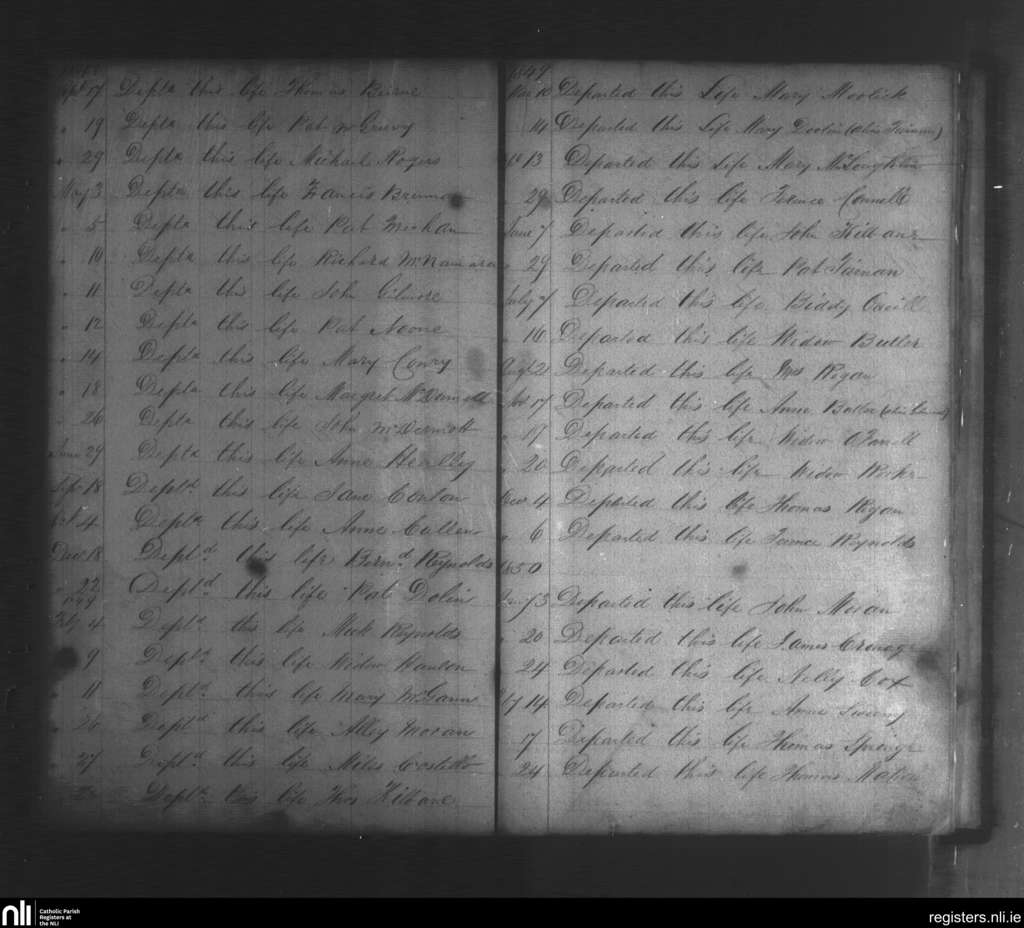 17 Deptd this life Thomas Beirne
" 19 Deptd this life Pat McGreevy
" 29 Deptd this life Michael Rogers
May 3 Deptd this life Francis Brennan
" 5 Deptd this life Pat Meehan
" 10 Deptd this life Richard McNamara
" 11 Deptd this life John Gilmore
" 12 Deptd this life Pat Noone
" 14 Deptd this life Mary Conry
" 18 Deptd this life Margret McDermott
" 26 Deptd this life John McDermott
June 29 Deptd this life Anne Healley
Sept 18 Deptd this life Jane Conlon
Oct 4 Deptd this life Anne Cullen
Decr 18 Deptd this life Bernd Reynolds
" 22 Deptd this life Pat Dolin
1849
Feby 4 Deptd this life Mick Reynolds
" 9 Deptd this life Widow Hanlon
" 11 Deptd this life Mary McGann
" 26 Deptd this life Alley Moran
" 27 Deptd this life Miles Costello
Deptd this life Thos Kilbane
1849
Mar 10 Departed this Life Mary
" 14 Departed this Life Mary Doolin (alias
13 Departed this Life Mary McLoughlin
" 29 Departed this life Terence Connell
June 7 Departed this life John Kilbane
" 29 Departed this life Pat Tiernan
July 7 Departed this life Biddy
" 16 Departed this life Widow Butler
Augt 21 Departed this life Mrs Regan
Nov 17 Departed this life Anne Butler (alias
" 17 Departed this life Widow O'Farrell
" 20 Departed this life Widow
Decr 4 Departed this life Thomas Regan
" 6 Departed this life Terence Reynolds
1850
13 Departed this life John Moran
" 20 Departed this life James
24 Departed this life Nelly Cox
Feby 14 Departed this life Anne
17 Departed this life Thomas
" 24 Departed this life Thomas
nli Catholic Parish
Registers at
the NLI
registers.nli.ie